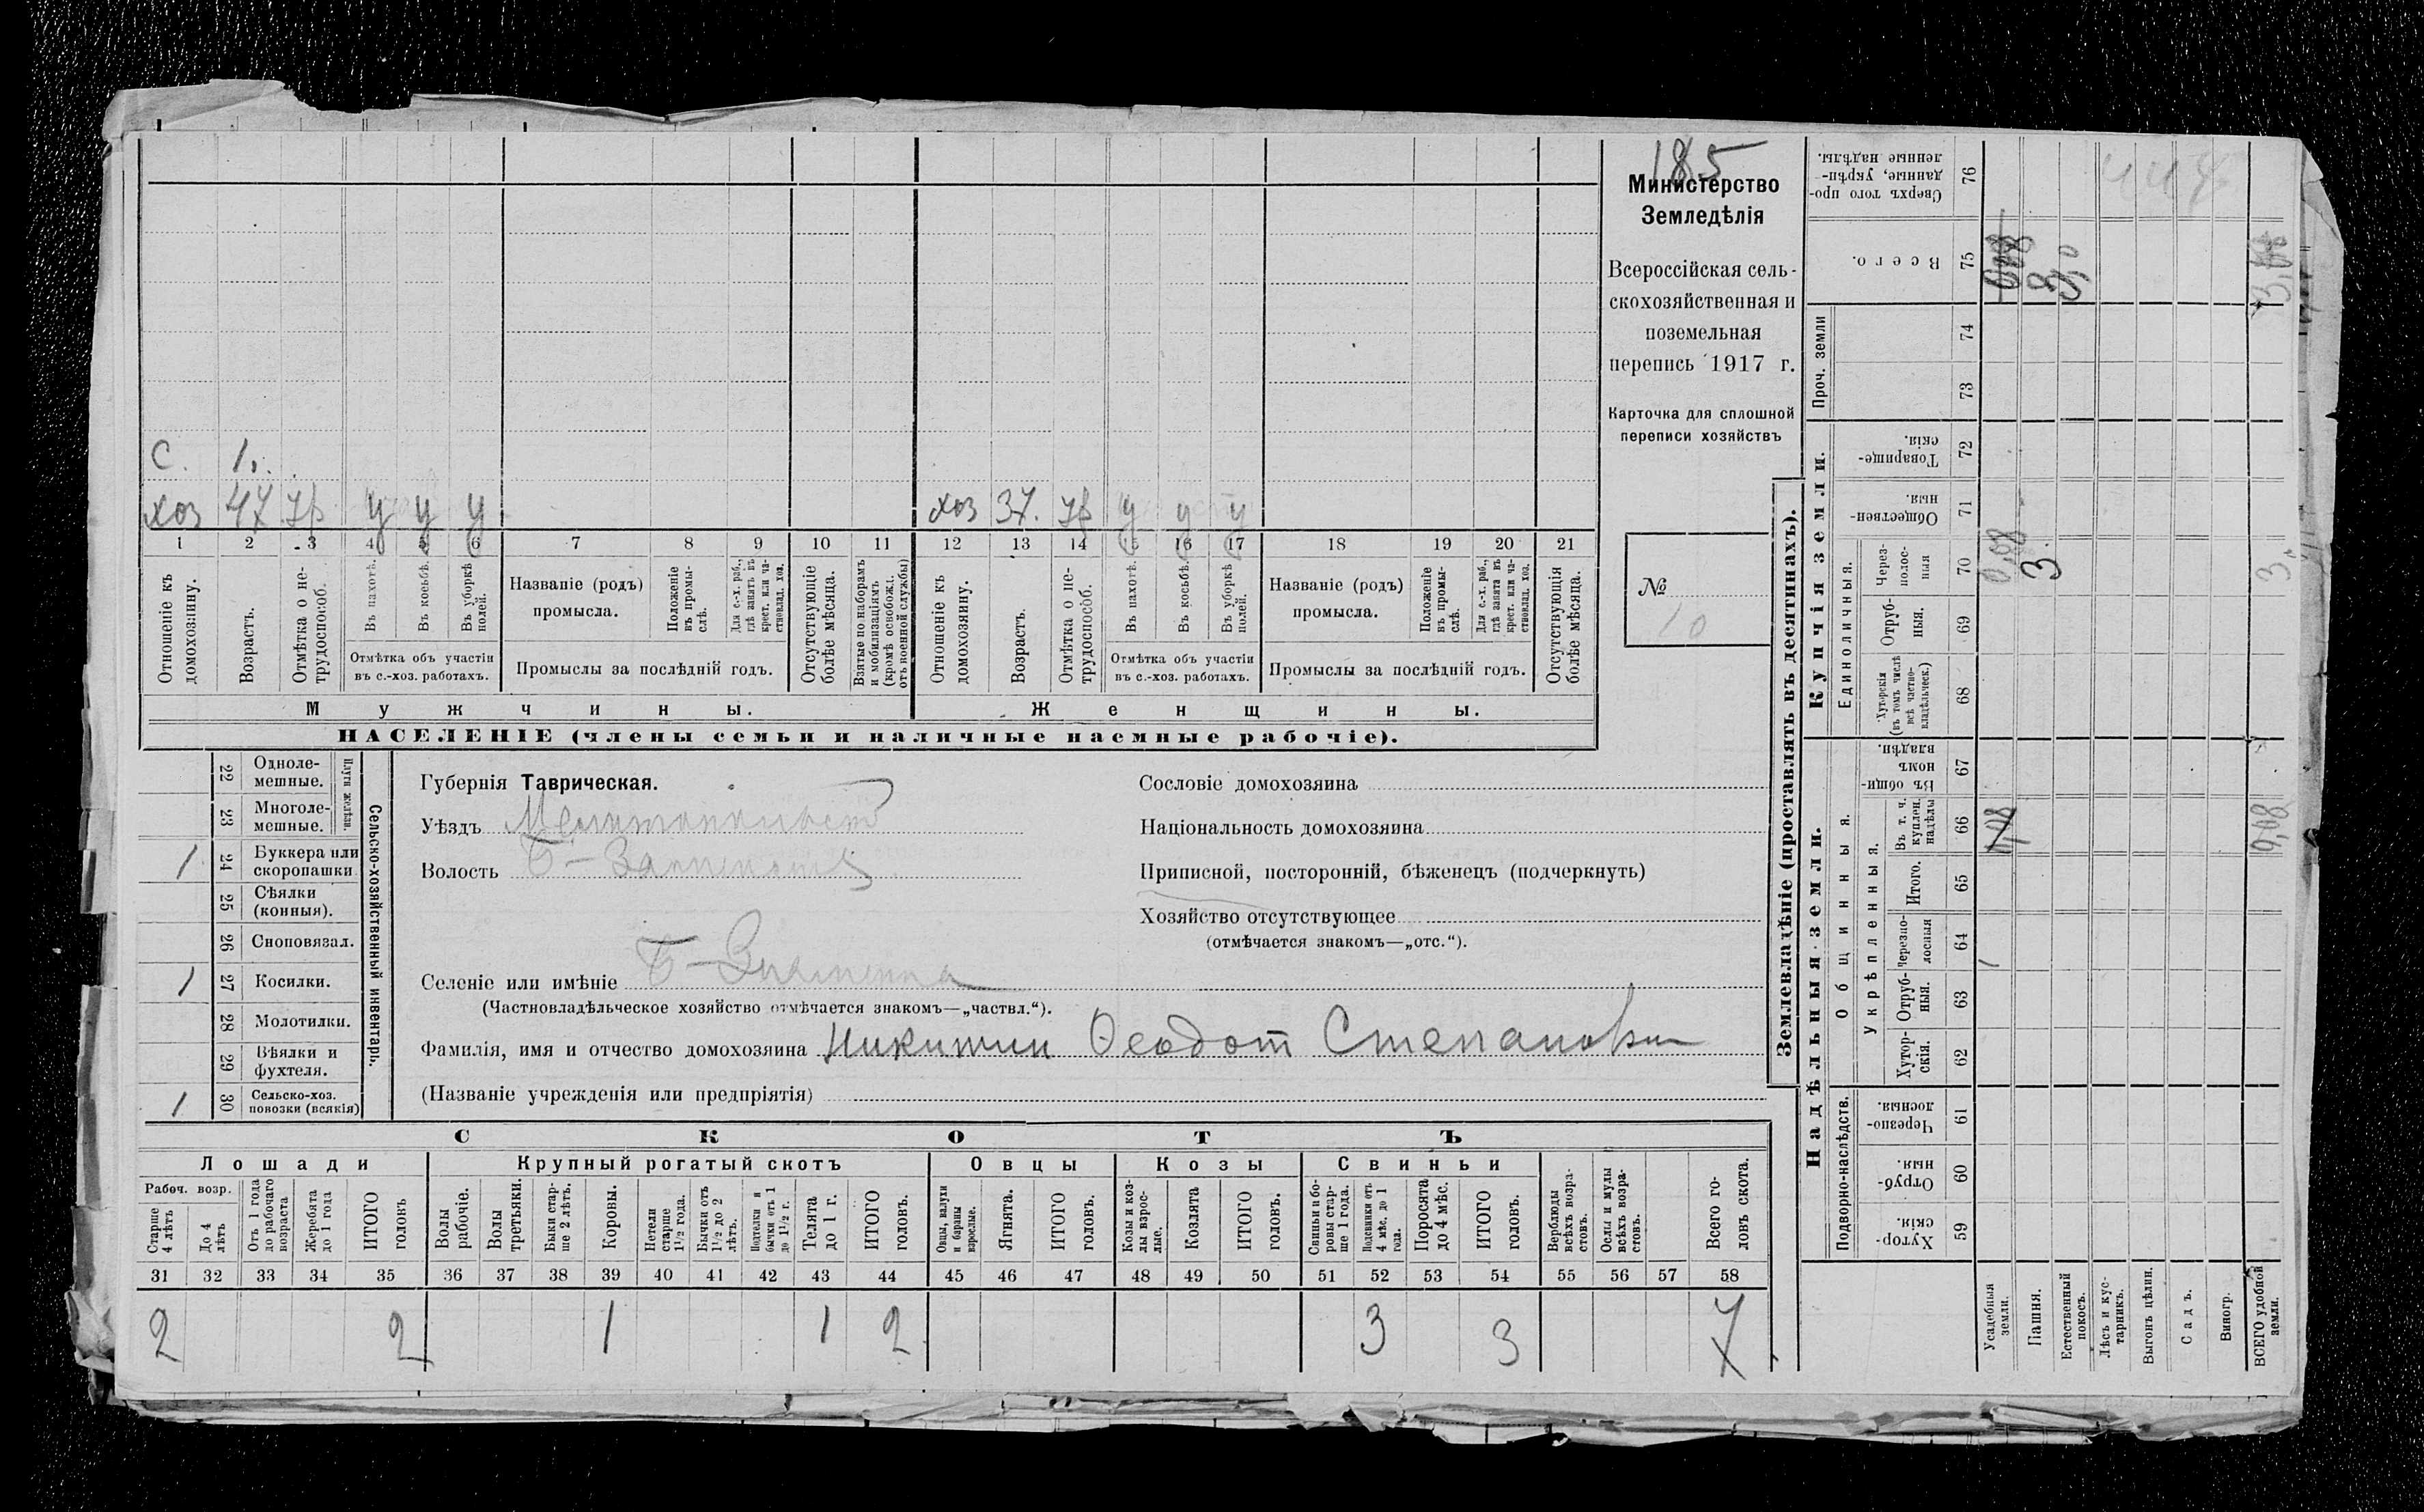 185
Министерство
Земледѣлія
Всероссійская сель-
скохозяйственная и
поземельная
перепись 1917 г.
Карточка для сплошной
переписи хозяйствъ
№
10
С. 1.
хоз 47 у у у
хоз 37. у у у
1 2 3 4 5 6 7 8 9 10 11 12 13 14 15 16 17 18 19 20 21
Отношеніе къ домохозяину.
Возрастъ.
Отмѣтка о не-трудоспособ.
Въ пахотѣ.
Въ косьбѣ.
Въ уборкѣ полей.
Отмѣтка объ участіи
въ с.-хоз. работахъ.
Названіе (родъ)
промысла.
Положеніе въ промы-слѣ.
Для с.-х. раб., гдѣ занятъ въ крест. или ча-стновлад. хоз.
Промыслы за послѣдній годъ.
Отсутствующіе болѣе мѣсяца.
Взятые по наборамъ и мобилизаціямъ (кромѣ освобожд. отъ военной службы)
Отношеніе къ домохозяину.
Возрастъ.
Отмѣтка о не-трудоспособ.
Въ пахотѣ.
Въ косьбѣ.
Въ уборкѣ полей.
Отмѣтка объ участіи
въ с.-хоз. работахъ.
Названіе (родъ)
промысла.
Положеніе въ промы-слѣ.
Для с.-х. раб., гдѣ занята въ крест. или ча-стновлад. хоз.
Промыслы за послѣдній годъ.
Отсутствующія болѣе мѣсяца.
Мужчины.
Женщины.
НАСЕЛЕНІЕ (члены семьи и наличные наемные рабочіе).
Сельско-хозяйственный инвентарь.
Плуги желѣзн.
22 Одноле-мешные.
23 Многоле-мешные.
1 24 Буккера или скоропашки
25 Сѣялки (конныя).
26 Сноповязал.
1 27 Косилки.
28 Молотилки.
29 Вѣялки и фухтеля.
1 30 Сельско-хоз. повозки (всякія)
Губернія Таврическая.
Уѣздъ
Волость
Селеніе или имѣніе Б-Знаменка
(Частновладѣльческое хозяйство отмѣчается знакомъ—„частвл.“).
Фамилія, имя и отчество домохозяина Никитин Феодот Степанович
(Названіе учрежденія или предпріятія)
Сословіе домохозяина
Національность домохозяина
Приписной, посторонній, бѣженецъ (подчеркнуть)
Хозяйство отсутствующее
(отмѣчается знакомъ—„отс.“).
СКОТЪ
Лошади
Крупный рогатый скотъ
Овцы
Козы
Свиньи
Рабоч. возр.
Старше 4 лѣтъ
До 4 лѣтъ
Отъ 1 года до рабочаго возраста
Жеребята до 1 года
ИТОГО головъ
Волы рабочіе.
Волы третьяки.
Быки стар-ше 2 лѣтъ.
Коровы.
Нетели старше 1½ года.
Бычки отъ 1½ до 2 лѣтъ.
Подтелки и бычки отъ 1 до 1½ г.
Телята до 1 г.
ИТОГО головъ.
Овцы, валухи и бараны взрослые.
Ягнята.
ИТОГО головъ.
Козы и коз-лы взрос-лые.
Козлята
ИТОГО головъ.
Свиньи и бо-ровы стар-ше 1 года.
Подсвинки отъ 4 мѣс. до 1 года.
Поросята до 4 мѣс.
ИТОГО головъ.
Верблюды всѣхъ возра-стовъ.
Ослы и мулы всѣхъ возра-стовъ.
Всего го-ловъ скота.
31 32 33 34 35 36 37 38 39 40 41 42 43 44 45 46 47 48 49 50 51 52 53 54 55 56 57 58
2 2 1 1 2 3 3 7
Землевладѣніе (проставлять въ десятинахъ).
Сверхъ того про-данные, укрѣп-ленные надѣлы. 76
Всего. 75
Проч. земли
74
73
Купчія земли.
Товарище-скія. 72
Обществен-ныя. 71
Единоличныя.
Через-полос-ныя 70 0,08 3
Отруб-ныя. 69
Хуторскія (въ томъ числѣ всѣ частно-владѣльческ.) 68
Надѣльныя земли.
Общинныя.
Въ общин-номъ владѣн. 67
Укрѣпленныя.
Въ т. ч. куплен. надѣлы 66
Итого. 65
Черезпо-лосныя 64
Отруб-ныя. 63
Хутор-скія. 62
Подворно-наслѣдств.
Черезпо-лосныя. 61
Отруб-ныя. 60
Хутор-скія 59
Усадебныя земли.
Пашня.
Естественный покосъ.
Лѣсъ и кус-тарникъ.
Выгонъ цѣлин.
Садъ.
Виногр.
ВСЕГО удобной земли.